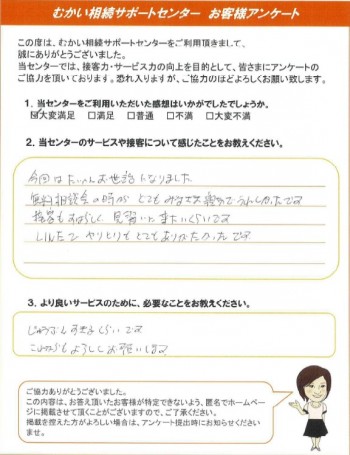 むかい相続サポートセンター　お客様アンケート
この度は、むかい相続サポートセンターをご利用頂きまして、
誠にありがとうございました。
当センターでは、接客力・サービス力の向上を目的として、皆さまにアンケートの
ご協力を頂いております。恐れ入りますが、ご協力のほどよろしくお願い致します。
１．当センターをご利用いただいた感想はいかがでしたでしょうか。
☑大変満足　□満足　□普通　□不満　□大変不満
２．当センターのサービスや接客について感じたことをお教えください。
今回はたいへんお世話になりました
無料相談会の時が とてもみなさま親切でうれしかったです
接客もすばらしく 見習いに来たいくらいです
LINEで やりとりも とてもありがたかったです
３．より良いサービスのために、必要なことをお教えください。
じゅうぶんすぎるくらいです
これからもよろしくお願いします
ご協力ありがとうございました。
この内容は、お答え頂いたお客様が特定できないよう、匿名でホームペ
ージに掲載させて頂くことがございますので、ご了承ください。
掲載を控えた方がよろしい場合は、アンケート提出時にお知らせください
ませ。